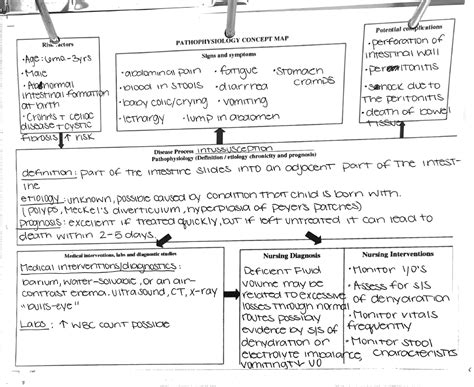 Risk Factors
• Age: 6mo.-3yrs
• Male
• Abnormal
intestinal formation
at birth
• Crohn's + celiac
disease + cystic
fibrosis ↑ risk
PATHOPHYSIOLOGY CONCEPT MAP
Signs and symptoms
• abdominal pain • fatigue • stomach
cramps
• blood in stools • diarrhea
• baby colic/crying • vomiting
• lethargy • lump in abdomen
Potential complications
• perforation of
intestinal wall
• peritonitis
• shock due to
the peritonitis
• death of bowel
tissue
Disease Process: intussusception
Pathophysiology (Definition / etiology chronicity and prognosis)
definition: part of the intestine slides into an adjacent part of the intest-
ine
etiology: unknown, possible caused by condition that child is born with.
(polyps, Meckel's diverticulum, hyperplasia of peyer's patches)
Prognosis: excellent if treated quickly, but if left untreated it can lead to
death within 2-5 days.
Medical interventions, labs and diagnostic studies
Medical interventions/diagnostics:
barium, water-soluble, or an air-
contrast enema. Ultrasound, CT, x-ray
"bulls-eye"
Labs: ↑ WBC count possible
Nursing Diagnosis
Deficient Fluid
volume may be
related to excessive
losses through normal
routes possibly
evidence by s/s of
dehydration or
electrolyte imbalance,
vomiting ↓ VO
Nursing Interventions
• Monitor I/O's
• Assess for s/s
of dehydration
• Monitor vitals
frequently
• Monitor stool
characteristics